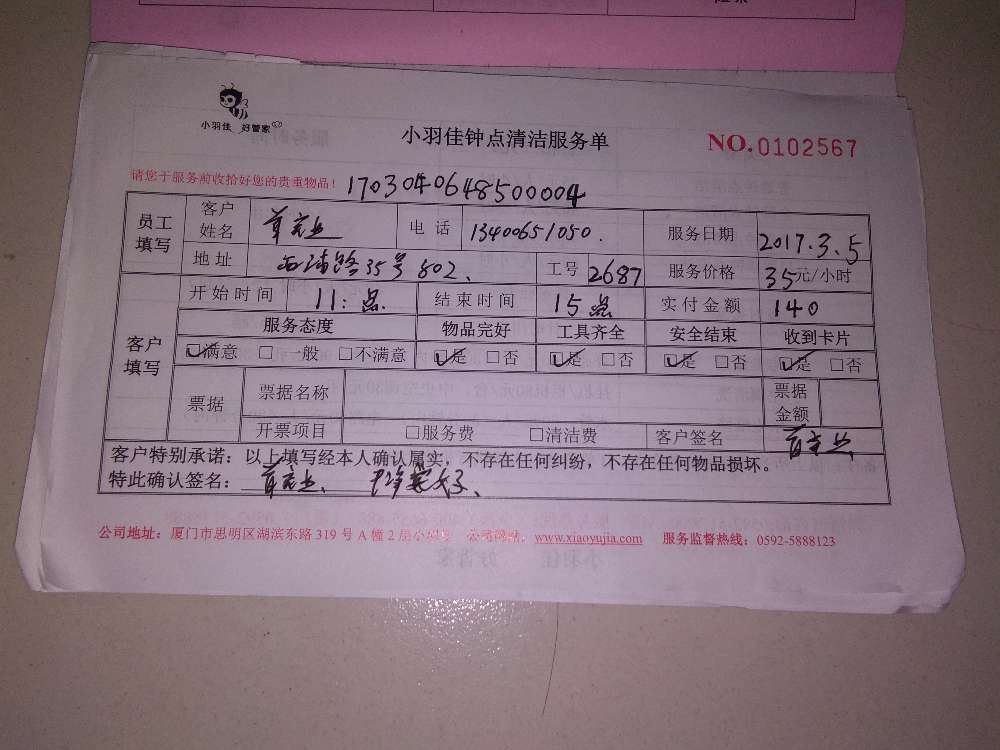 小羽佳 好管家
小羽佳钟点清洁服务单
NO.0102567
请您于服务前收拾好您的贵重物品!
17030406485​00004
员工填写 客户姓名 电话 13400651050. 服务日期 2017.3.5
地址 路35号802. 工号 2687 服务价格 35元/小时
客户填写 开始时间 11:点 结束时间 15点 实付金额 140
服务态度 物品完好 工具齐全 安全结束 收到卡片
☑满意 □一般 □不满意 ☑是 □否 ☑是 □否 ☑是 □否 ☑是 □否
票据 票据名称 票据金额
开票项目 □服务费 □清洁费 客户签名
客户特别承诺：以上填写经本人确认属实，不存在任何纠纷，不存在任何物品损坏。
特此确认签名：
公司地址：厦门市思明区湖滨东路 319 号 A 幢 2 层小羽佳 公司网站：www.xiaoyujia.com 服务监督热线：0592-5888123